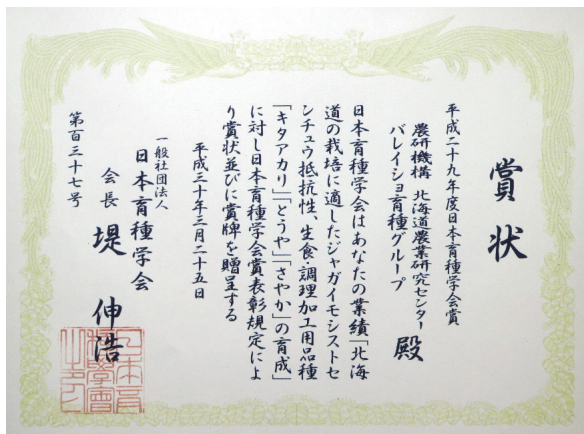 賞状
平成二十九年度日本育種学会賞
農研機構 北海道農業研究センター
バレイショ育種グループ 殿
日本育種学会はあなたの業績「北海
道の栽培に適したジャガイモシストセ
ンチュウ抵抗性、生食・調理加工用品種
「キタアカリ」「とうや」「さやか」の育成」
に対し日本育種学会賞表彰規定によ
り賞状並びに賞牌を贈呈する
平成三十年三月二十五日
一般社団法人
日本育種学会
会長 堤 伸浩
第百三十七号